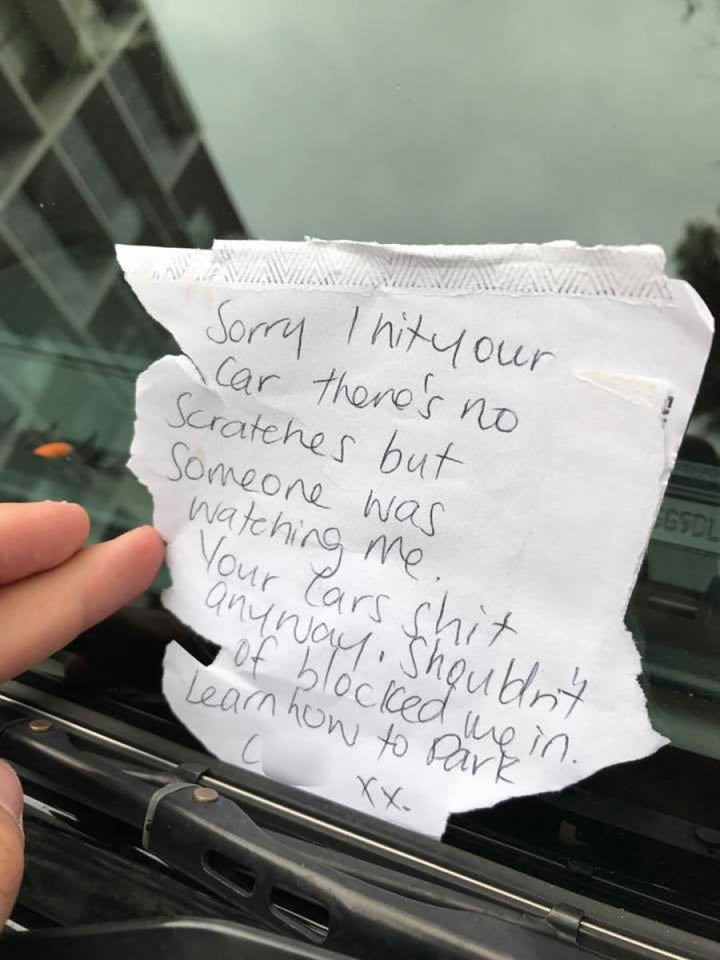 Sorry I hit your
car there's no
Scratches but
Someone was
watching me.
Your Cars shit
anyway. Shouldn't
of blocked me in.
Learn how to Park
xx.